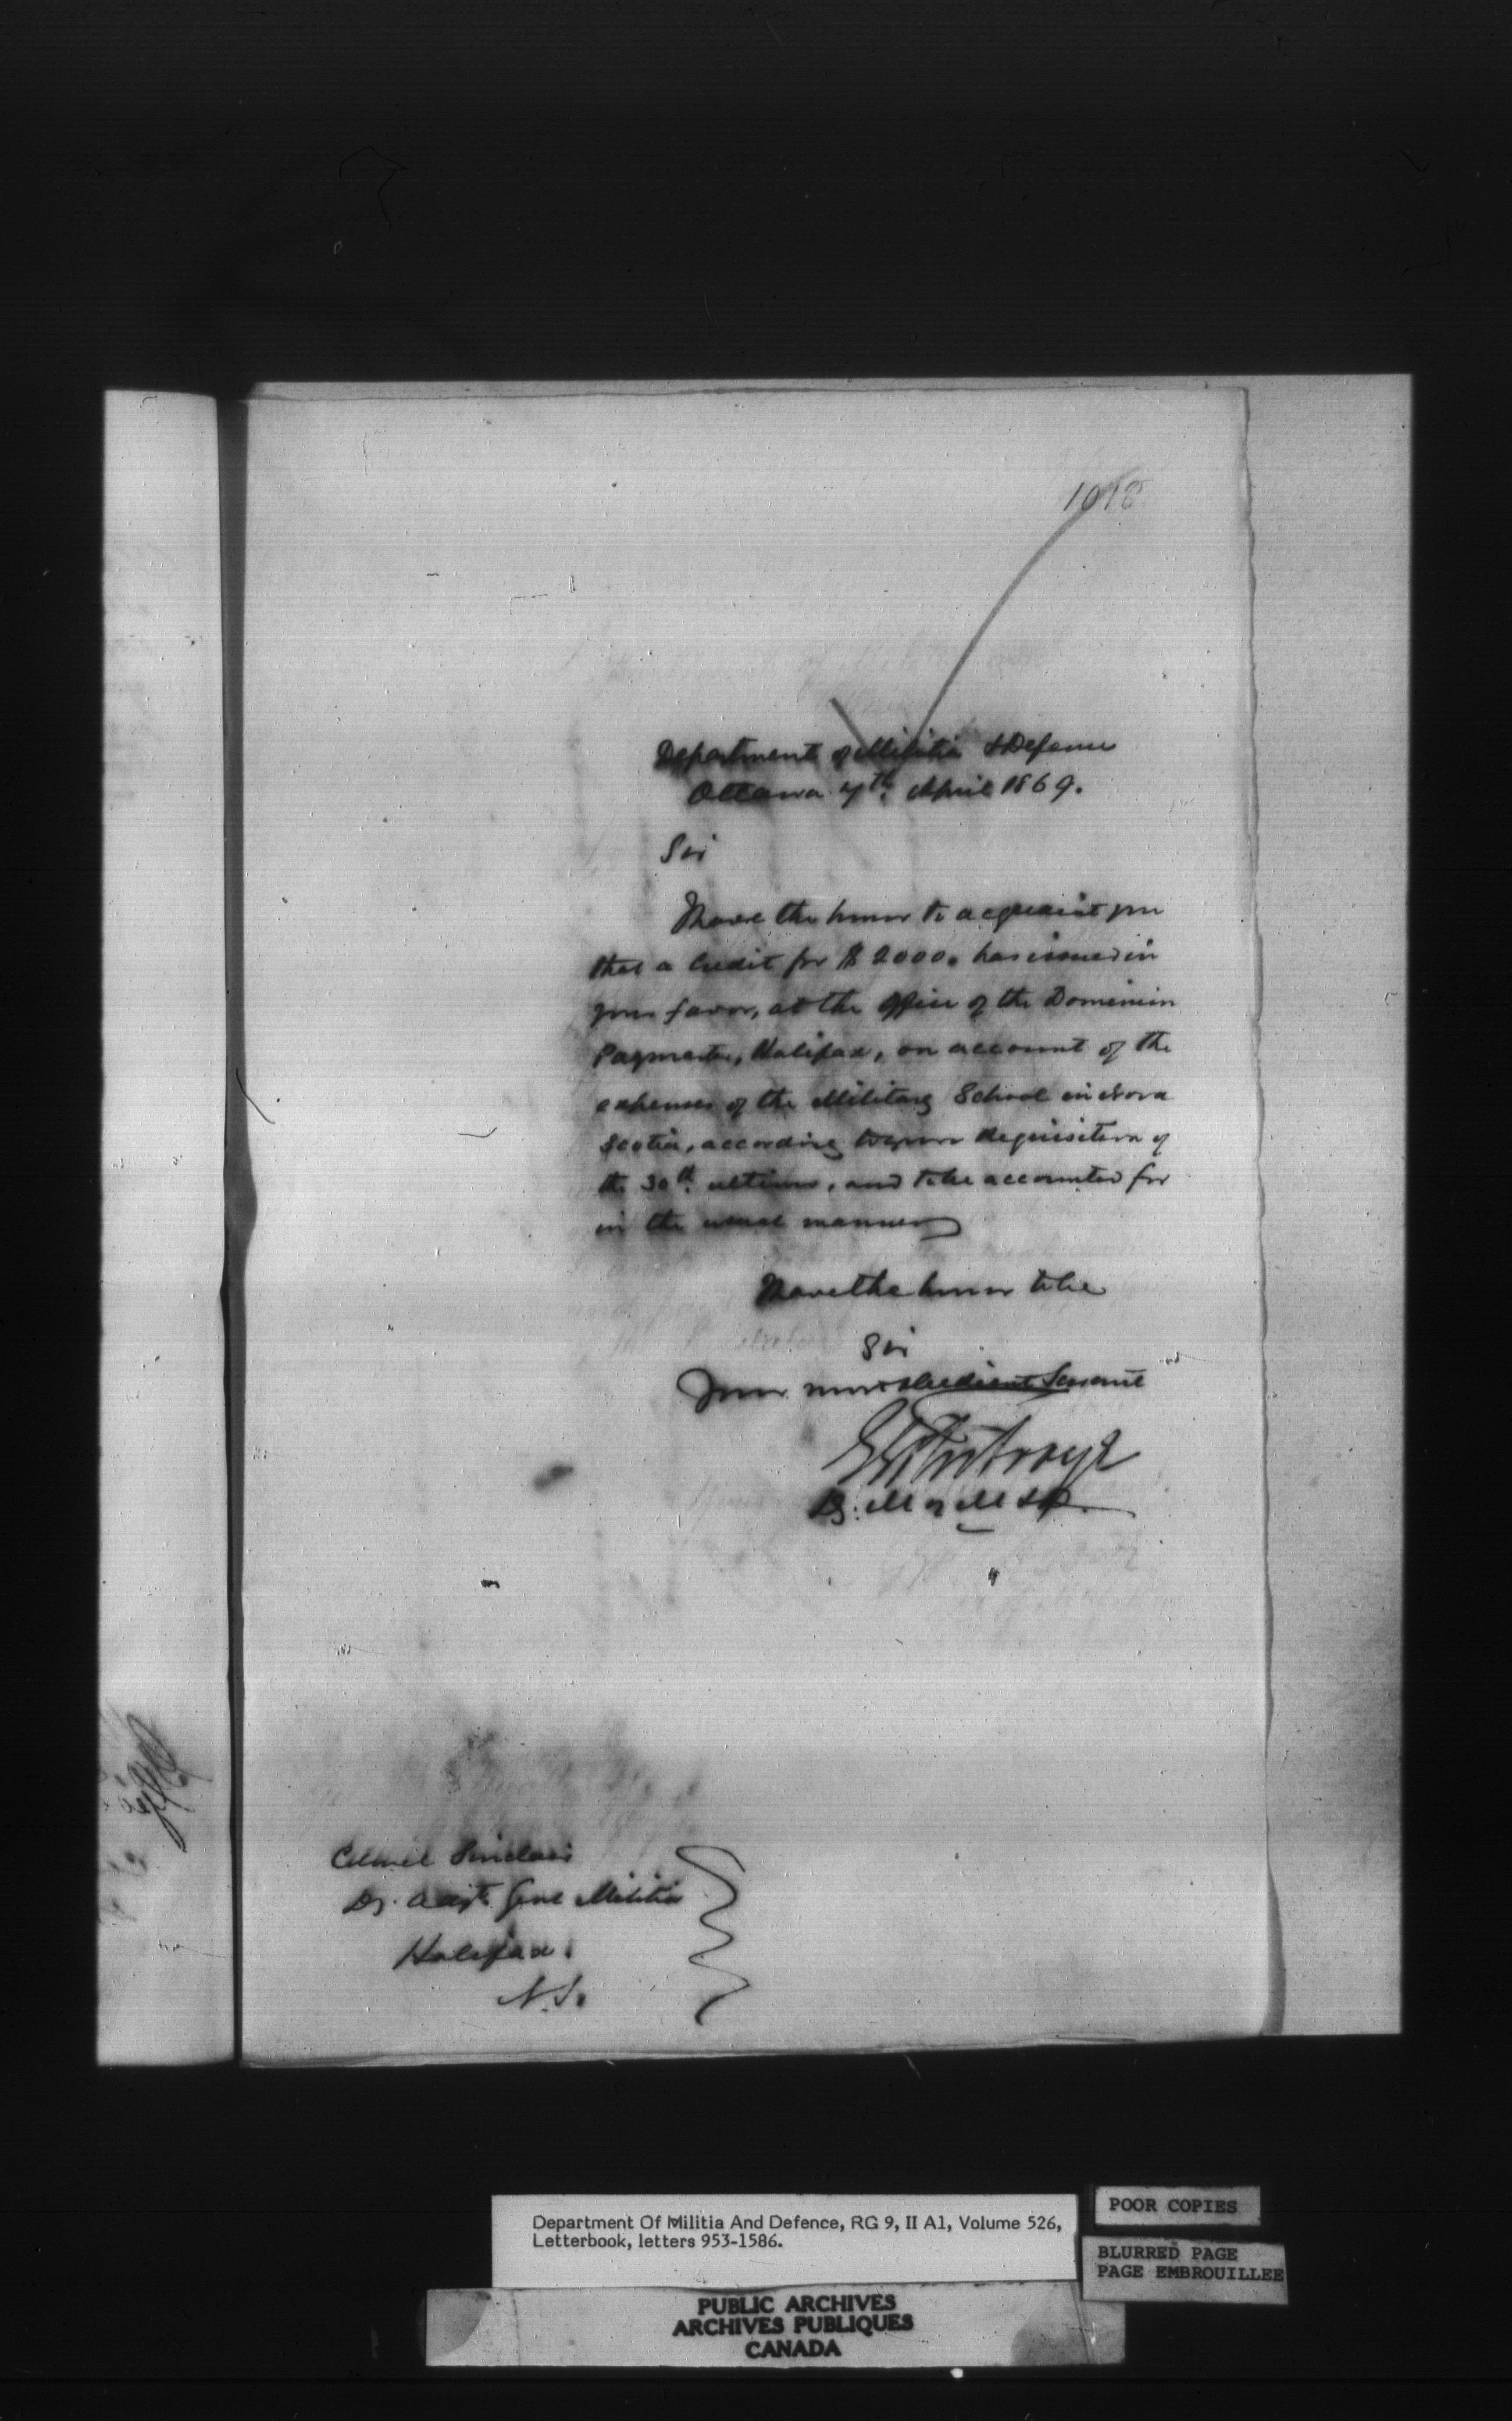 1018
Department of Militia & Defence
Ottawa 7th. April 1869.
Sir
I have the honor to acquaint you
that a Credit for $2000. has issued in
your favor, at the Office of the Dominion
Paymaster, Halifax, on account of the
expenses of the Military School in Nova
Scotia, according to your Requisition of
the 30th. ultimo, and to be accounted for
in the usual manner
I have the honor to be
Sir
Your most obedient Servant
D. M of M & D.
Colonel Sinclair
Dy. Adjt. Genl Militia
Halifax.
N.S.
Department Of Militia And Defence, RG 9, II A1, Volume 526,
Letterbook, letters 953-1586.
POOR COPIES
BLURRED PAGE
PAGE EMBROUILLEE
PUBLIC ARCHIVES
ARCHIVES PUBLIQUES
CANADA